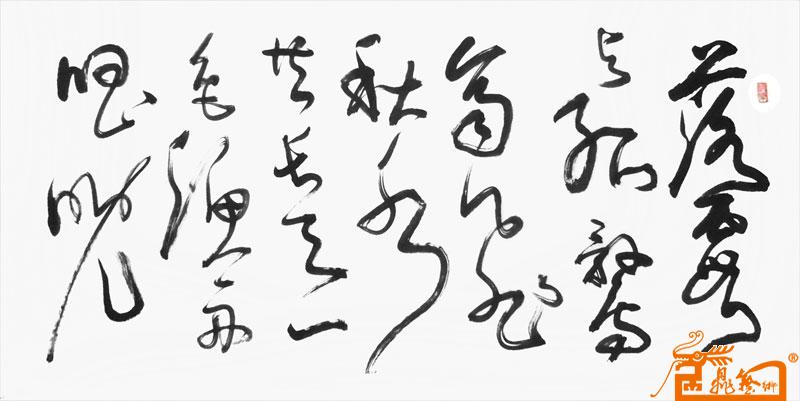 落霞
与孤鹜
齐飞
秋水
共长天一
色渔舟
唱晚